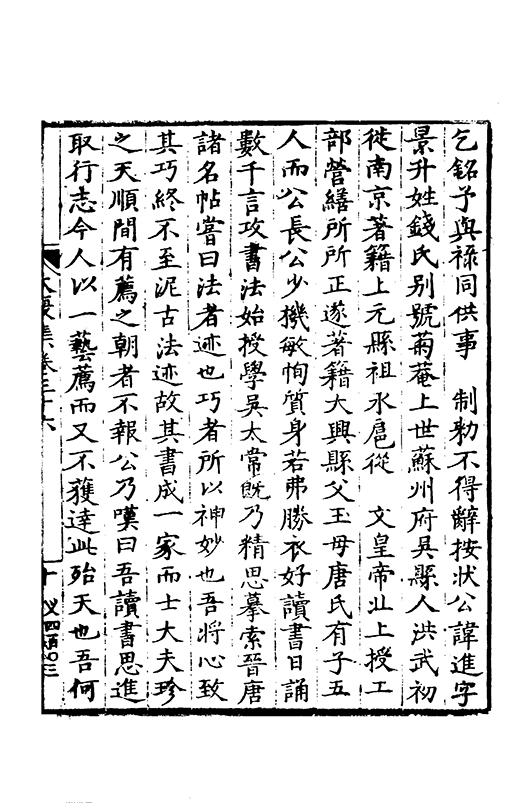 乞銘予與祿同供事　制勑不得辭按狀公諱進字
景升姓錢氏别號菊菴上世蘇州府吳縣人洪武初
徙南京著籍上元縣祖永扈從　文皇帝北上授工
部營繕所所正遂著籍大興縣父玉母唐氏有子五
人而公長公少機敏恂質身若弗勝衣好讀書日誦
數千言攻書法始授學吳太常旣乃精思摹索晉唐
諸名帖嘗曰法者迹也巧者所以神妙也吾將心致
其巧終不至泥古法迹故其書成一家而士大夫珍
之天順間有薦之朝者不報公乃嘆曰吾讀書思進
取行志今人以一藝薦而又不獲達此殆天也吾何
集卷三十六
十